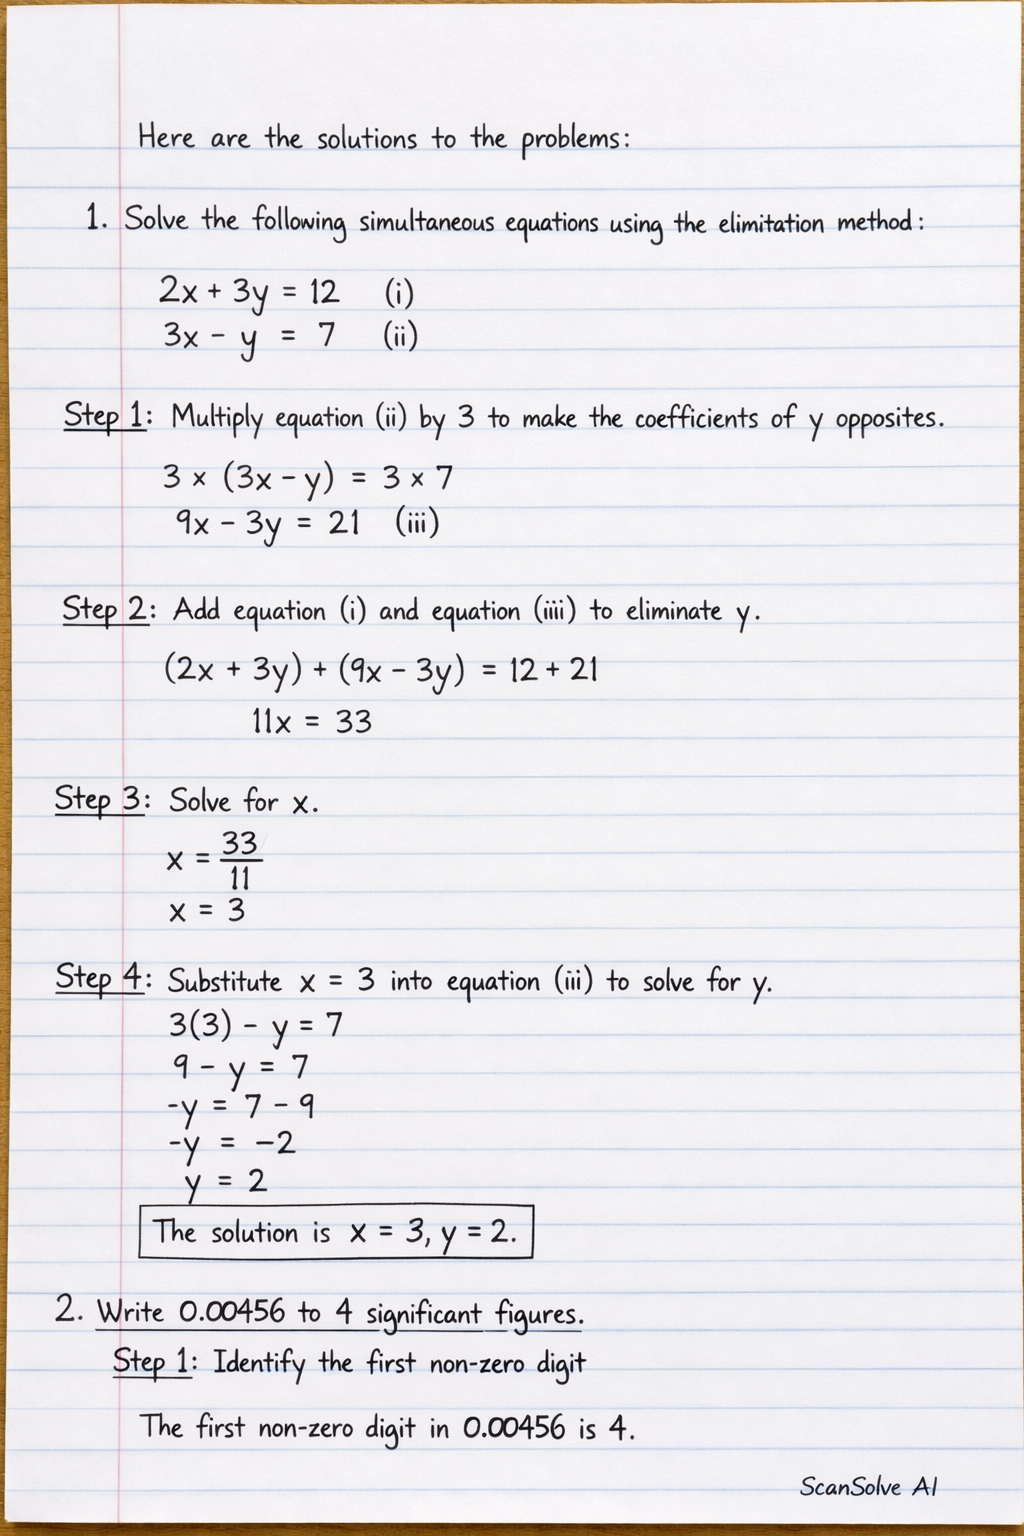 Here are the solutions to the problems:
1. Solve the following simultaneous equations using the elimitation method:
2x + 3y = 12 (i)
3x - y = 7 (ii)
Step 1: Multiply equation (ii) by 3 to make the coefficients of y opposites.
3 × (3x - y) = 3 × 7
9x - 3y = 21 (iii)
Step 2: Add equation (i) and equation (iiii) to eliminate y.
(2x + 3y) + (9x - 3y) = 12 + 21
11x = 33
Step 3: Solve for x.
x = 33/11
x = 3
Step 4: Substitute x = 3 into equation (iii) to solve for y.
3(3) - y = 7
9 - y = 7
-y = 7 - 9
-y = -2
y = 2
The solution is x = 3, y = 2.
2. Write 0.00456 to 4 significant figures.
Step 1: Identify the first non-zero digit
The first non-zero digit in 0.00456 is 4.
ScanSolve AI